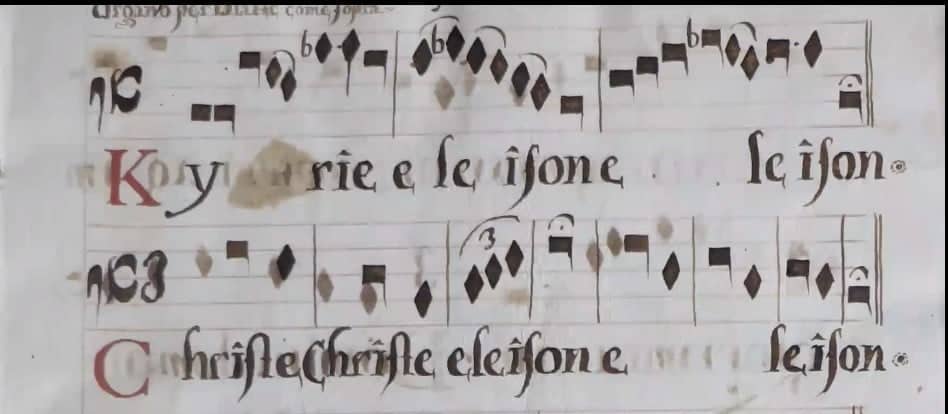 Ky rîe e le îſon e le îſon.
3
ChrîſteChrîſte eleîſon e leîſon.